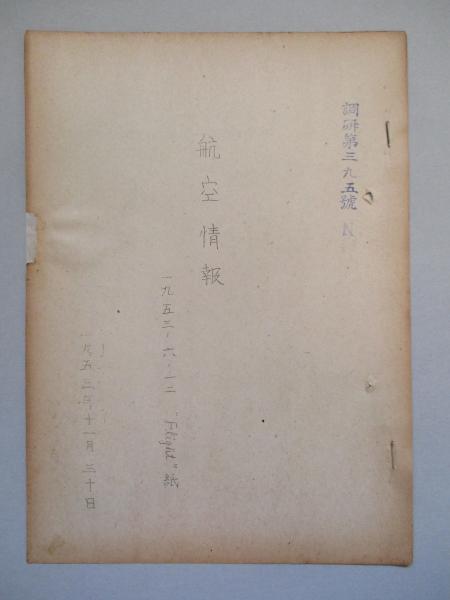 調研第三九五號 N
航空情報
一九五三・六・一二 "Flight"紙
一九五三年十一月三十日